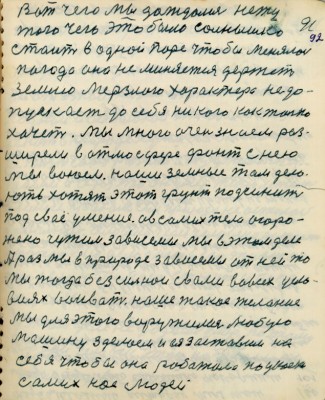 Вот чего мы дождался нету
того чего это было солнышко
стоит в одной поре чтобы менялась
погода она не миняется держит
землю мерзлого характера недо-
пускает до себя никого как только
хочет. Мы много очен знаем рас-
ширели в атмосфере фронт с нею
мы воюем. наши земные там дело-
хотят этот грунт подсинит
под своё умение. а в самих тело огоро-
жено чужим зависемы мы в этом деле
А раз мы в природе зависеми от ней то
мы тогда без сильной свами во всех усло-
виях воиват. наше такое желание
мы для этого воружилися любую
машину зделоем и ея заставим на
себя чтобы она работала
самих нас людей
91
92